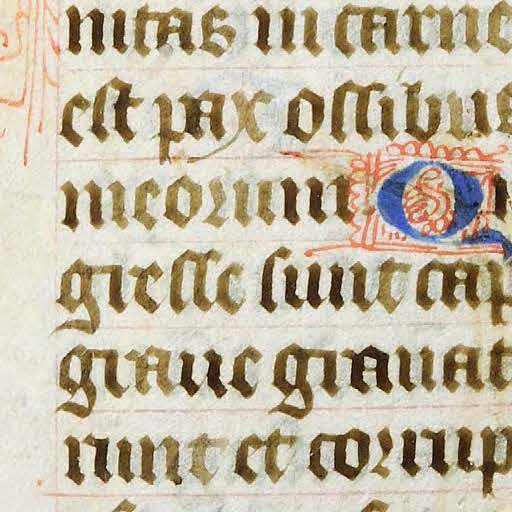 nitas in carne
est pax ossibus
meorum Q
gresse sunt cap
graue grauat
runt et corrup